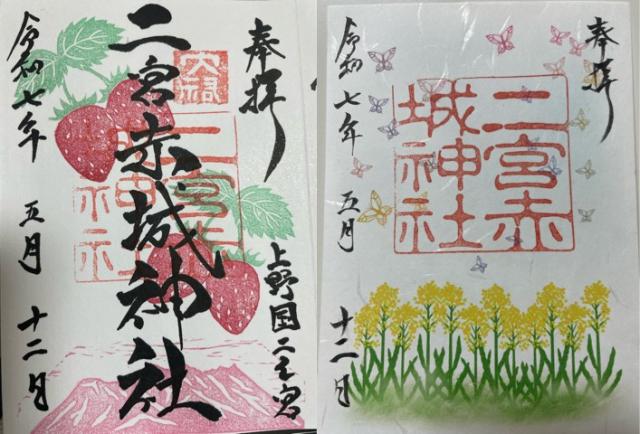 奉拝
上野国二之宮
二宮赤城神社
二宮赤
城神社
令和七年 五月 十二日
奉拝
二宮赤
城神社
令和七年 五月 十二日